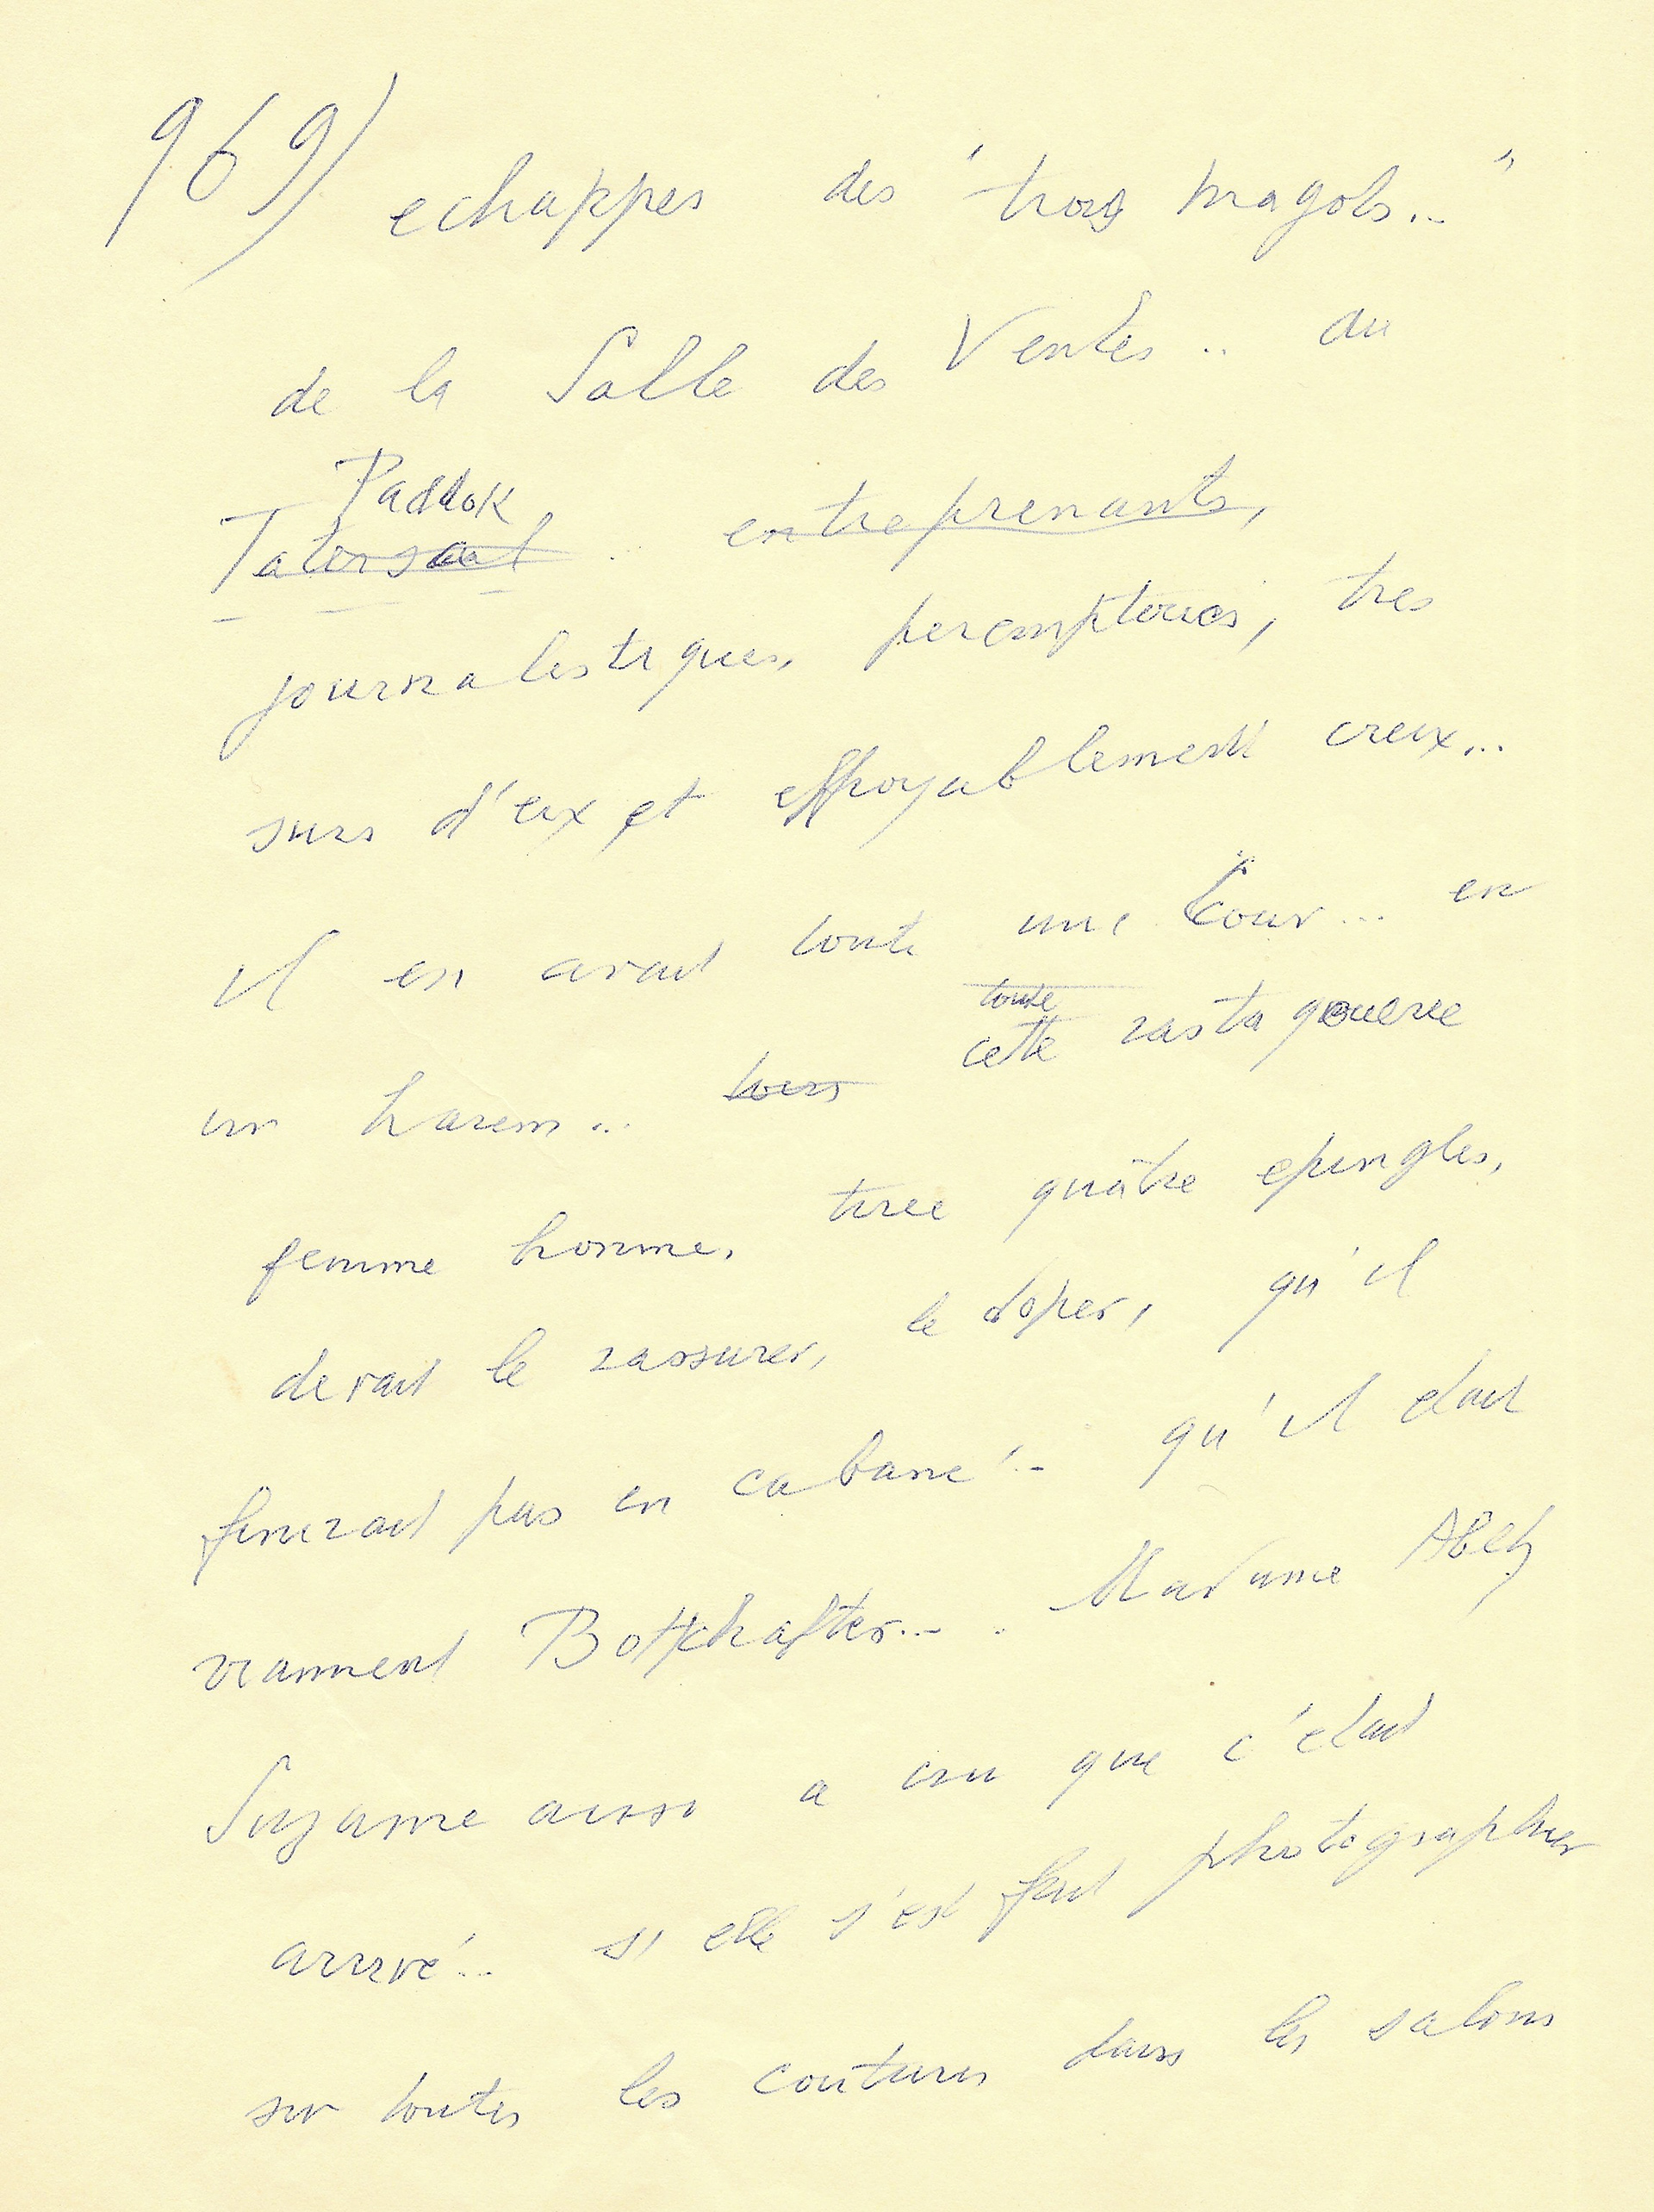 969) echappes des "trois magots..."
de la Salle des Ventes .. du
Paddok
Tatersaal .. entreprenants,
journalestiques, peremptoires, tres
surs d'eux et effroyablement creux...
il en avait toute une Cour... en
toute
un harem... tous cette rastaquouerie
femme homme, tiree quatre epingles,
devait le rassurer, le doper, qu'il
finirait pas en cabane!.. qu'il etait
vraiment Bottchafter... Madame Abetz
Suzanne aussi a cru que c'etait
arrivé!.. si elle s'est fait photographier
sur toutes les coutures dans les salons